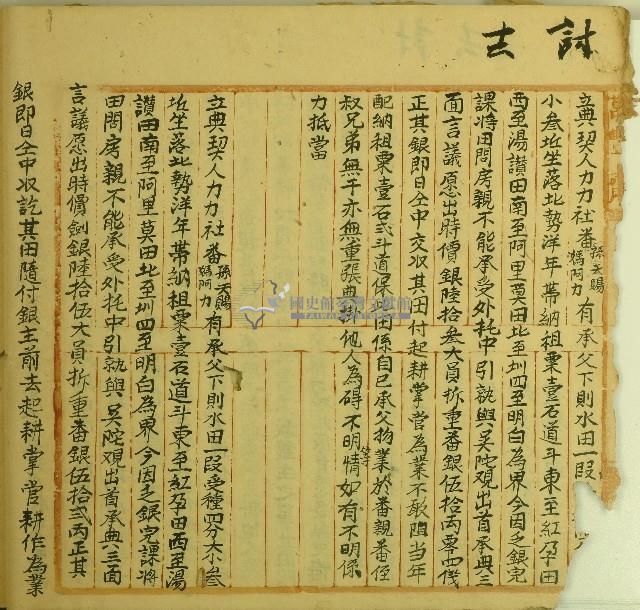 討 古
立典契人力力社番孫天賜媽阿力有承父下則水田一段
小叁坵坐落北勢洋年帶納租粟壹石道斗東至紅孕田
西至湯讚田南至阿里莫田北至圳四至明白為界今因乏銀完
課將田問房親不能承受外托中引就與吳陀觀出首承典三
面言議愿出時價銀陸拾叁大員折重番銀伍拾丙零四戔
正其銀即日仝中交收其田付起耕掌管為業不敢阻当年
配納租粟壹石弍斗道保此田係自己承父物業於番親番侄
叔兄弟無干亦無重張典掛他人為碍不明等情如有不明係
力抵當
立典契人力力社番孫天賜媽阿力有承父下則水田一段受種四分大小叁
坵坐落北勢洋年帶納租粟壹石道斗東至紅孕田西至湯
讚田南至阿里莫田北至圳四至明白為界今因乏銀完課將
田問房親不能承受外托中引就與吳陀观出首承典三面
言議愿出時價劍銀陸拾伍大員折重番銀伍拾弍丙正其
銀即日仝中收訖其田隨付銀主前去起耕掌管耕作為業
國史館臺灣文獻館
TAIWAN HISTORICA